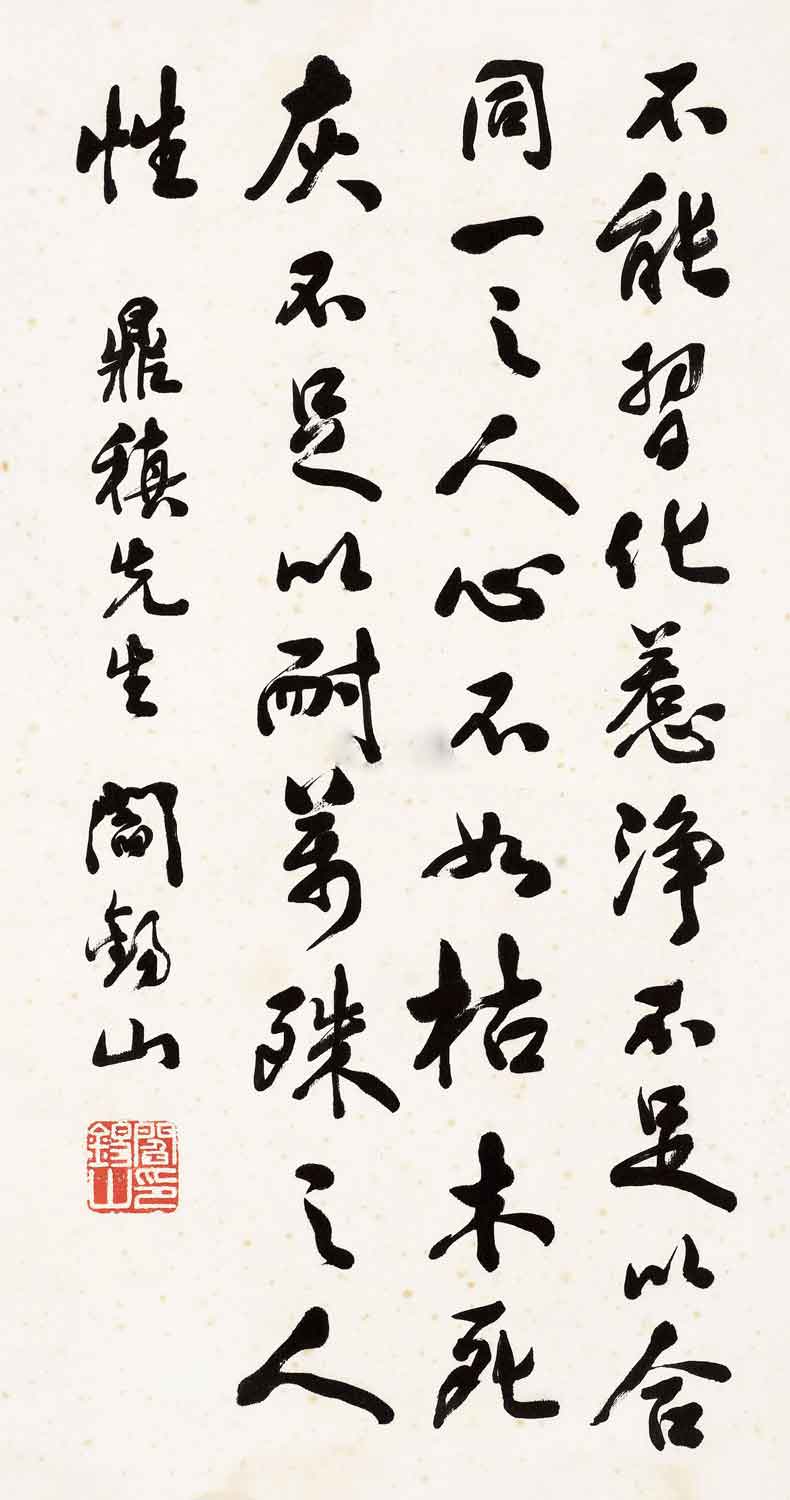 不能習化惹淨不足以合
同一之人心不如枯木死
灰不足以耐萬殊之人
性
鼎稹先生
閻錫山
閻錫山印